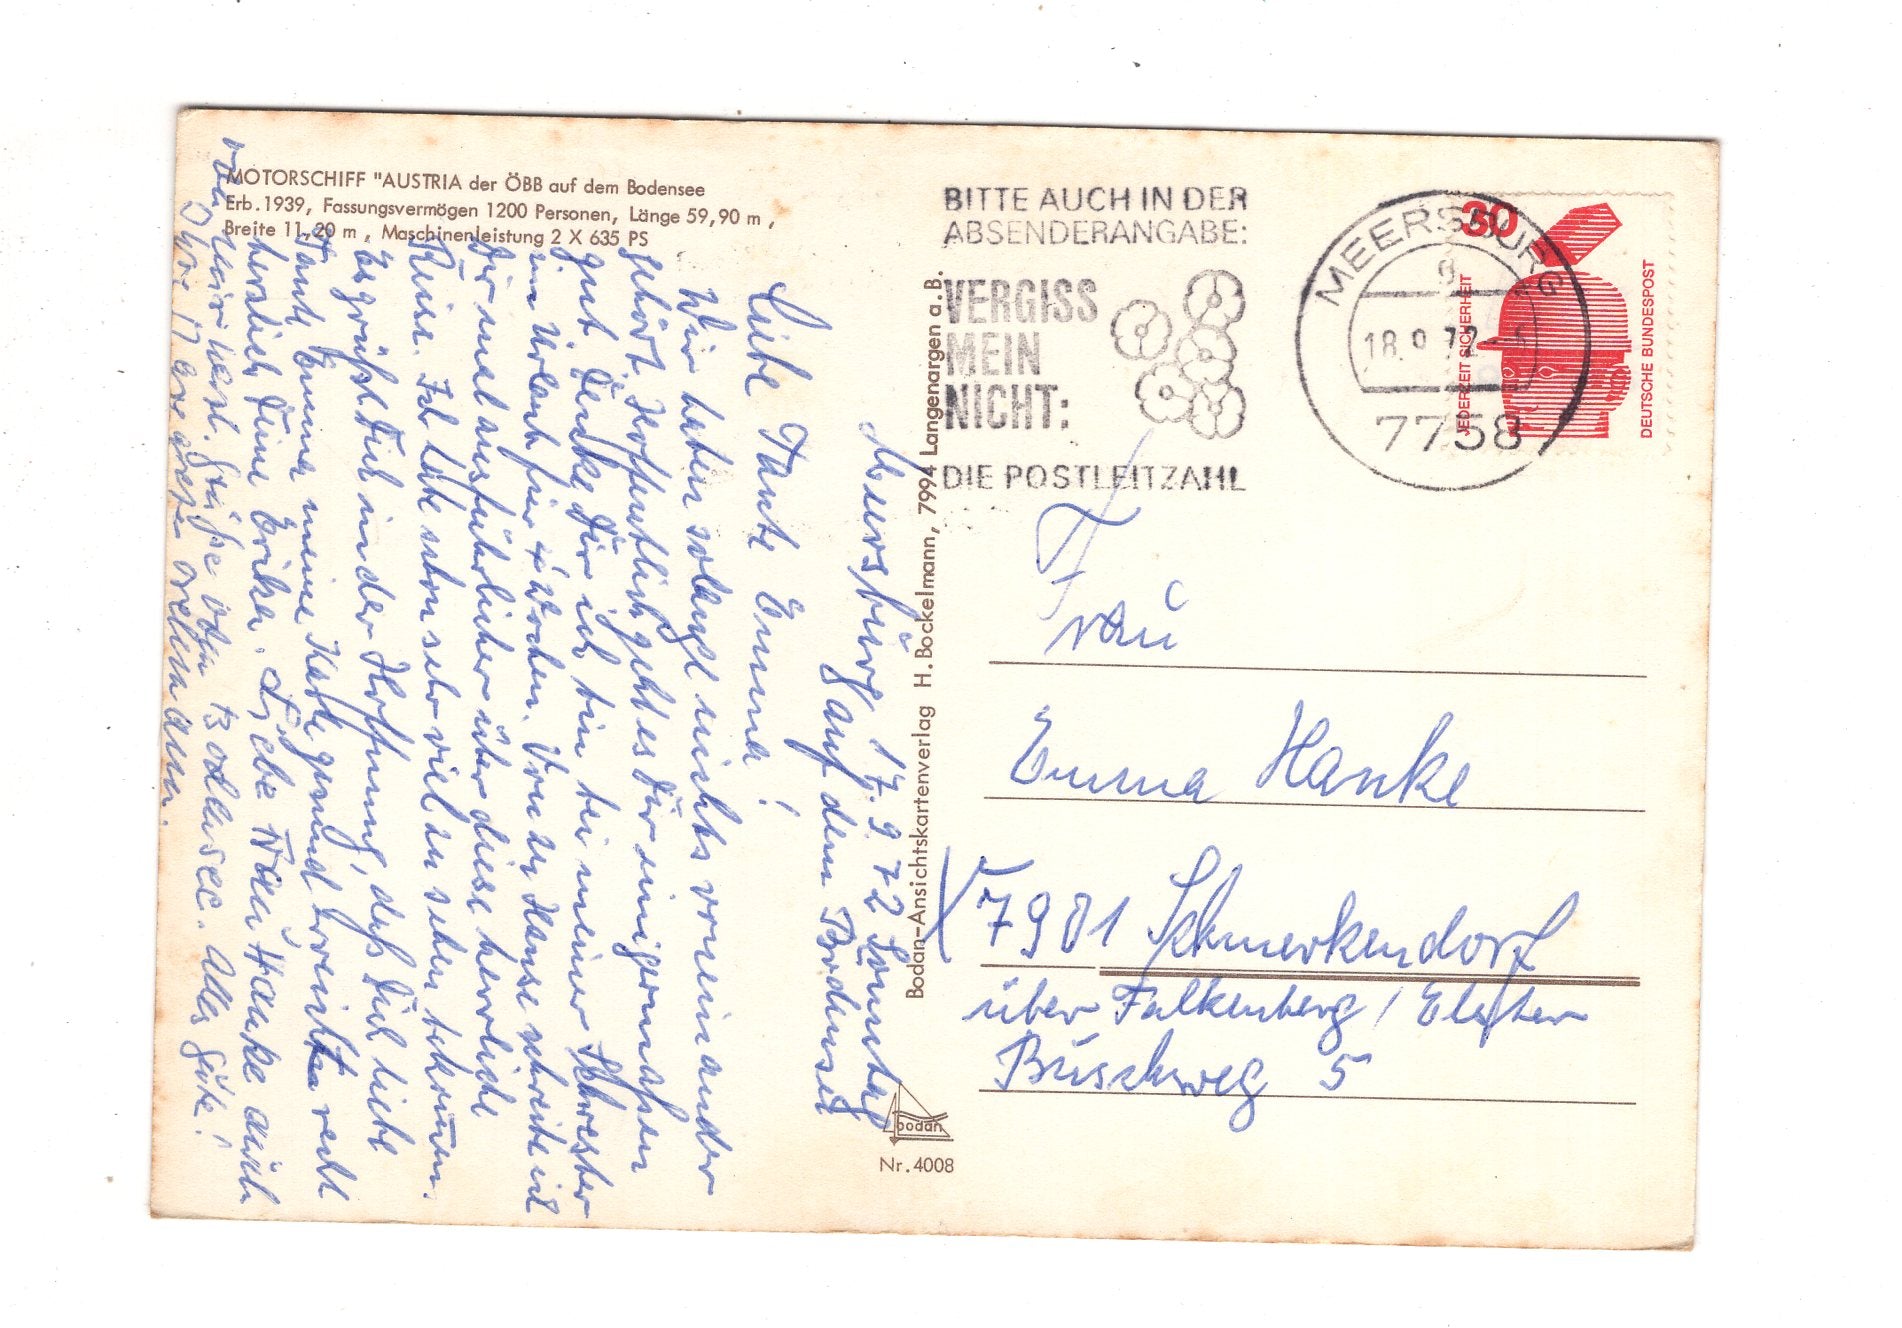 MOTORSCHIFF "AUSTRIA der ÖBB auf dem Bodensee
Erb.1939, Fassungsvermögen 1200 Personen, Länge 59,90 m ,
Breite 11,20 m , Maschinenleistung 2 X 635 PS
Meersburg 17.9.72 Sonntag
auf dem Bodensee
Liebe Tante Emma!
Wir haben solange nichts voneinander
gehört. Hoffentlich geht es Dir einigermaßen
gut. Denke Dir ich bin bei meiner Schwester
im Urlaub für 4 Wochen. Von zu Hause schreibe ich
Dir mal ausführlicher über diese herrliche
Reise. Ich habe schon sehr viel zu sehen bekommen.
Es grüßt Dich in der Hoffnung, daß Dich liebe
Tante Emma meine Karte gesund erreicht recht
herzlich Deine Erika. Liebe Frau Hanke auch
von mir herzl. Grüße vom Bodensee. Alles Gute!
Ihre
Bodan-Ansichtskartenverlag H. Bockelmann, 7994 Langenargen a. B.
bodan
Nr. 4008
BITTE AUCH IN DER
ABSENDERANGABE:
VERGISS
MEIN
NICHT:
DIE POSTLEITZAHL
MEERSBURG
18.9.72
7758
30
JEDERZEIT SICHERHEIT
DEUTSCHE BUNDESPOST
Frau
Emma Hanke
X 7901 Schmerkendorf
über Falkenberg / Elster
Buschweg 5